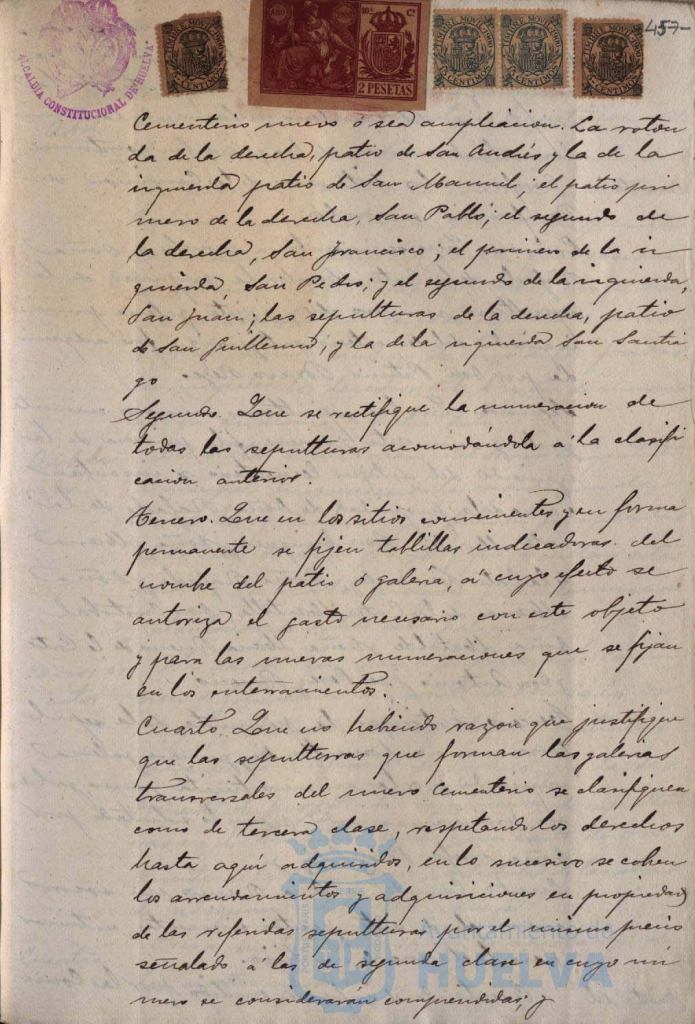 457-
ALCALDIA CONSTITUCIONAL DE HUELVA
TIMBRE MOVIL
2 PESETAS
Cementerio nuevo ó sea ampliacion. La roton
da de la derecha, patio de San Andrés y la de la
izquierda patio de San Manuel; el patio pri
mero de la derecha, San Pablo; el segundo de
la derecha, San Francisco; el primero de la iz
quierda, San Pedro; y el segundo de la izquierda,
San Juan; las sepulturas de la derecha, patio
de San Guillermo; y la de la izquierda San Santia
go
Segundo. Que se rectifique la numeracion de
todas las sepulturas acomodándola á la clasifi
cacion anterior.
Tercero. Que en los sitios convenientes y en forma
permanente se fijen tablillas indicadoras del
nombre del patio ó galeria, á cuyo efecto se
autoriza el gasto necesario con este objeto
y para las nuevas numeraciones que se fijan
en los enterramientos.
Cuarto. Que no habiendo razon que justifique
que las sepulturas que forman las galerias
transversales del nuevo Cementerio se clasifiquen
como de tercera clase, respetando los derechos
hasta aquí adquiridos, en lo sucesivo se cobren
los arrendamientos y adquisiciones en propiedad
de las referidas sepulturas por el mismo precio
señalado á las de segunda clase en cuyo nú
mero se considerarán comprendidas; y
Ayuntamiento de
HUELVA